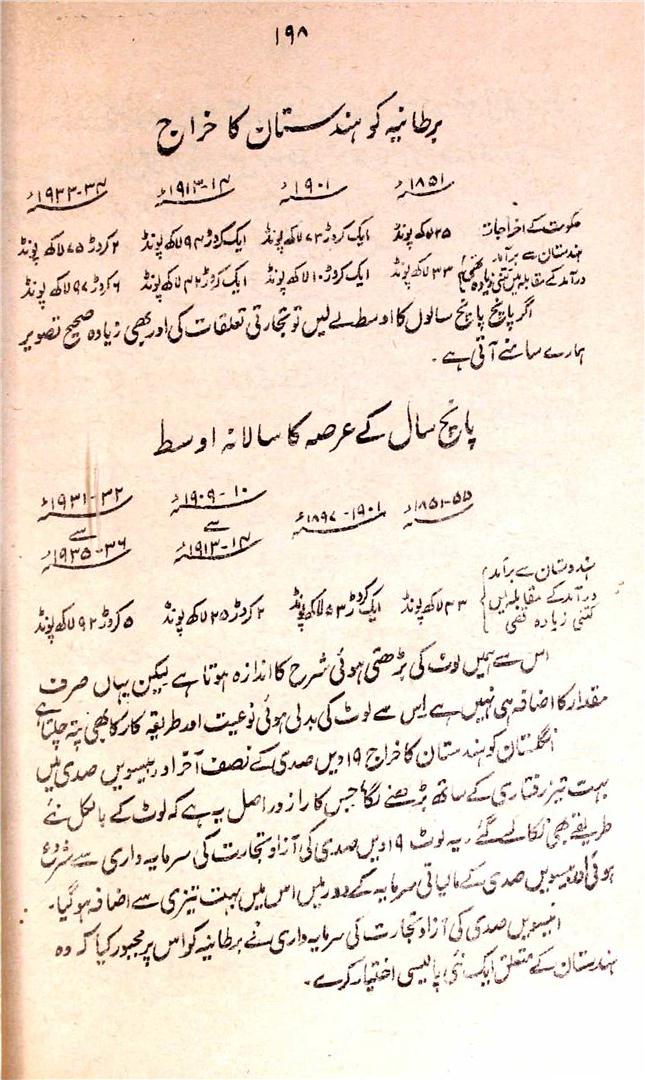 ۱۹۸
برطانیہ کو ہندستان کا خراج
۱۸۵۱ء ۱۹۰۱ء ۱۹۱۳-۱۴ء ۱۹۳۳-۳۴ء
حکومت کے اخراجات ۲۵ لاکھ پونڈ ایک کروڑ ۷۳ لاکھ پونڈ ایک کروڑ ۹۴ لاکھ پونڈ ۲ کروڑ ۷۵ لاکھ پونڈ
ہندستان سے برآمد
درآمد کے مقابلہ میں کتنی زیادہ تھی ۳۳ لاکھ پونڈ ایک کروڑ ۱۰ لاکھ پونڈ ایک کروڑ ۴۲ لاکھ پونڈ ۶ کروڑ ۹۷ لاکھ پونڈ
اگر پانچ پانچ سالوں کا اوسط لے لیں تو تجارتی تعلقات کی اور بھی زیادہ صحیح تصویر
ہمارے سامنے آتی ہے۔
پانچ سال کے عرصہ کا سالانہ اوسط
۱۸۵۱-۵۵ء ۱۸۹۷-۱۹۰۱ء ۱۹۰۹-۱۰ء ۱۹۳۱-۳۲ء
سے سے
۱۹۱۳-۱۴ء ۱۹۳۵-۳۶ء
ہندوستان سے برآمد
درآمد کے مقابلہ میں
کتنی زیادہ تھی ۴۳ لاکھ پونڈ ایک کروڑ ۵۳ لاکھ پونڈ ۲ کروڑ ۲۵ لاکھ پونڈ ۵ کروڑ ۹۲ لاکھ پونڈ
اس سے ہمیں لوٹ کی بڑھتی ہوئی شرح کا اندازہ ہوتا ہے لیکن یہاں صرف
مقدار کا اضافہ ہی نہیں ہے اس سے لوٹ کی بدلی ہوئی نوعیت اور طریقہ کار کا بھی پتہ چلتا ہے
انگلستان کو ہندستان کا خراج ۱۹ویں صدی کے نصف آخر اور بیسویں صدی میں
بہت تیز رفتاری کے ساتھ بڑھنے لگا جس کا راز دراصل یہ ہے کہ لوٹ کے بالکل نئے
طریقے بھی نکالے گئے۔ یہ لوٹ ۱۹ویں صدی کی آزاد تجارت کی سرمایہ داری سے شروع
ہوئی اور بیسویں صدی کے مالیاتی سرمایہ کے دور میں اس میں بہت تیزی سے اضافہ ہو گیا۔
انیسویں صدی کی آزاد تجارت کی سرمایہ داری نے برطانیہ کو اس پر مجبور کیا کہ وہ
ہندستان کے متعلق ایک نئی پالیسی اختیار کرے۔